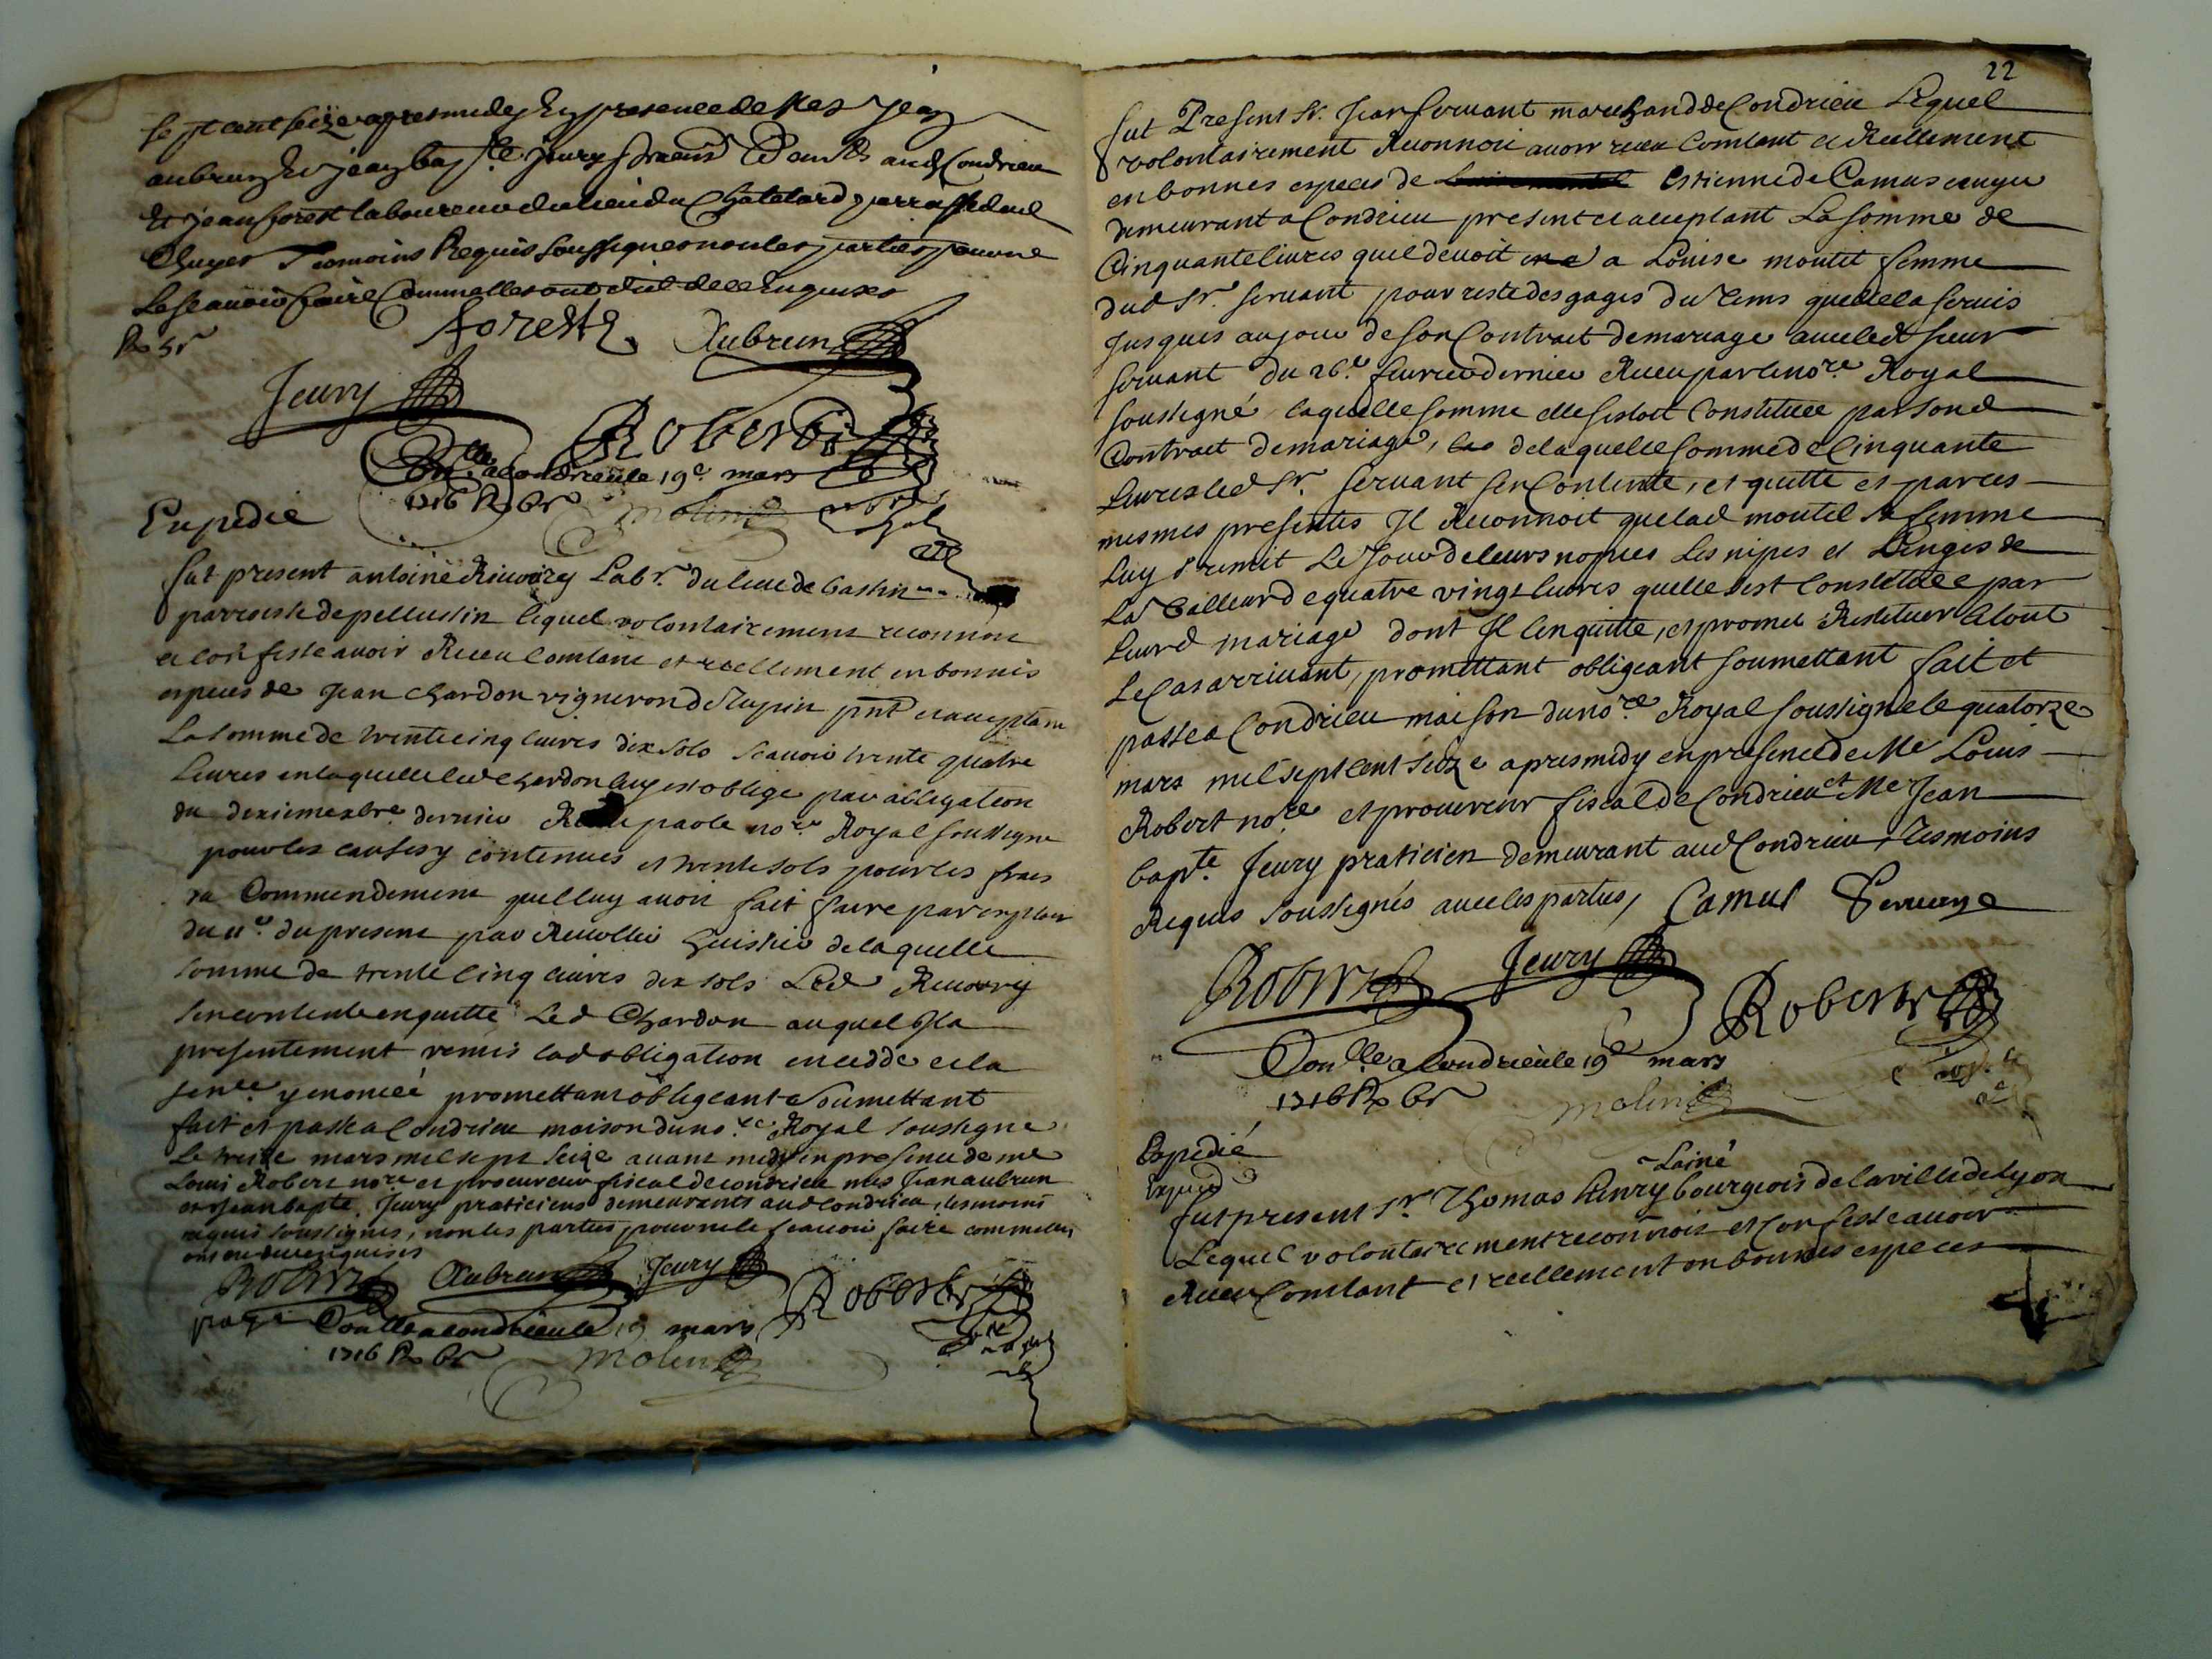 sept cent seize apres midy En presence de Mes Jean
aubrun Et Jean bap.te Jeury praticiens aud Condrieu
Et Jean forest laboureur du lieu du Chatelard parroisse de
Chuyer Temoins Requis soussignes non les parties pour ne
le scauoir faire Comme elles ont dit de ce Enquises
foreste Aubrun
Jeury
Roberti
Con.lle a condrieu le 19e mars
1716 R
Molin
Expedié
fut present antoine Riuoiry Lab.r du lieu de
parroisse de pellussin lequel volontairement reconnoit
et confesse auoir Receu Contant et reellement en bonnes
especes de Jean Chardon vigneron de Tupin pnt et acceptant
La somme de trente cinq liures dix sols scauoir trente quatre
Liures en laquelle led Chardon luy est obligé par obligation
du dernier par le no.re Royal soussigne
pour les causes y contenues et trente sols pour les frais
du Commendement quel luy auoit fait faire par exploit
du 11.e du present par huissier de laquelle
somme de trente cinq liures dix sols Led Riuoiry
sen contente en quitte Led Chardon auquel Il a
presentement remis lad obligation
y enoncée promettant obligeant Soumettant
fait et passé a Condrieu maison du no.re Royal soussigne
Le treize mars mil sept seize auant midy en presence de me
Louis Robert no.re et procureur fiscal de condrieu mes Jean aubrun
et Jean bapte. Jeury praticiens demeurants aud Condrieu, tesmoins
requis soussignes, non les parties pour ne le scauoir faire comme elles
ont dit de ce enquises
Robert Aubrun Jeury Robert
payé Con.lle a condrieu le 19 mars
1716 R
Molin
22
fut Present Sr. Jean seruant marchand de Condrieu Lequel
volontairement Reconnoit auoir receu Contant et Reellement
en bonnes especes de Estienne de Camus
demeurant a Condrieu present et acceptant La somme de
Cinquante liures quil deuoit a Louise montet femme
dud Sr. seruant pour reste des gages du tems quelle la seruis
Jusques au jour de son Contrait de mariage auec led sieur
seruant du 26.e feurier dernier Receu par le no.re Royal
soussigné laquelle somme elle sestoit Constituée par sond
Contrait de mariage, de laquelle somme de Cinquante
Liures led Sr. seruant sen Contente, et quitte et par ces
mesmes presentes Il Reconnoit que lad montet sa femme
Luy remit Le Jour de leurs nopces Les nipes et Linges de
La Valleur de quatre vingt liures quelle sest Constituée par
Leurd mariage dont Il len quitte, et promet Restituer le tout
Le Cas arriuant, promettant obligeant soumettant fait et
passé a Condrieu maison du no.re Royal soussigné le quatorze
mars mil sept cent seize apres midy en presence de Me Louis
Robert no.re et procureur fiscal de Condrieu et Me Jean
bap.te Jeury praticien demeurant aud Condrieu, tesmoins
Requis soussignés auec les parties, Camus
Robert Jeury Robert
Con.lle a Condrieu le 19e mars
1716 R
Molin
Expedié
Lainé
fut present Sr. Thomas henry bourgeois de la ville de Lyon
Lequel volontairement reconnoit et Confesse auoir
Receu Contant et reellement en bonnes especes